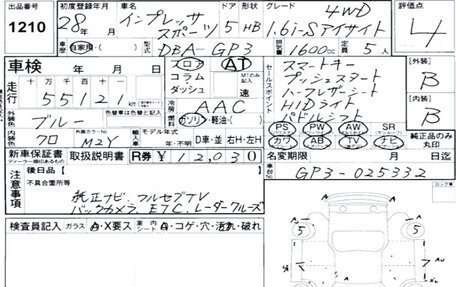 出品番号 1210
初度登録年月 28年 月
車名 インプレッサスポーツ
ドア 形状 5 HB
グレード 4WD 1.6i-Sアイサイト
評価点 4
車歴 自家用
型式 DBA-GP3
排気量 1600cc 定員 5人
車検 年 月 日
フロア AT
コラム
ダッシュ 速
走行 十万 万 千 百 十 一
55121
冷房 AAC
燃料 ガソリン・軽油
外装色 ブルー
内装色 クロ
カラーNo. M2Y
モデル年式 年・不明
D車・並 右H・左H
セールスポイント
スマートキー
プッシュスタート
ハーフレザーシート
HIDライト
パドルシフト
【外装】 B
【内装】 B
PS PW AW SR
カワ AB TV ナビ
純正品のみ丸印
新車保証書 取扱説明書 R券 ¥12,030
名変期限 月 日迄
後日品
車台No. GP3-025332
注意事項
不具合箇所等
純正ナビ、フルセグTV
バックカメラ、ETC、レーダークルーズ
検査員記入 ガラス A・X要ス 内車シート A・コゲ・穴・汚れ・破れ
5 5